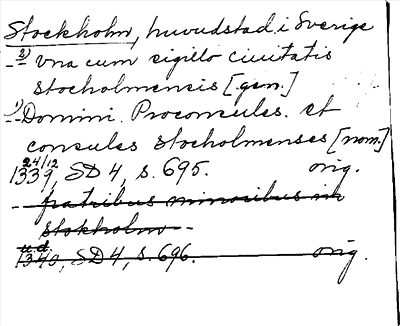 Stockholm, huvudstad i Sverige
-2)- Vna cum sigillo ciuitatis
stocholmensis [gen.]
1)-Domini Proconsules et
consules stocholmenses [nom.]
24/12
1339, SD 4, s. 695. orig.
- fratribus minoribus in
stokholm -
u.d.
1340, SD 4, s. 696. orig.